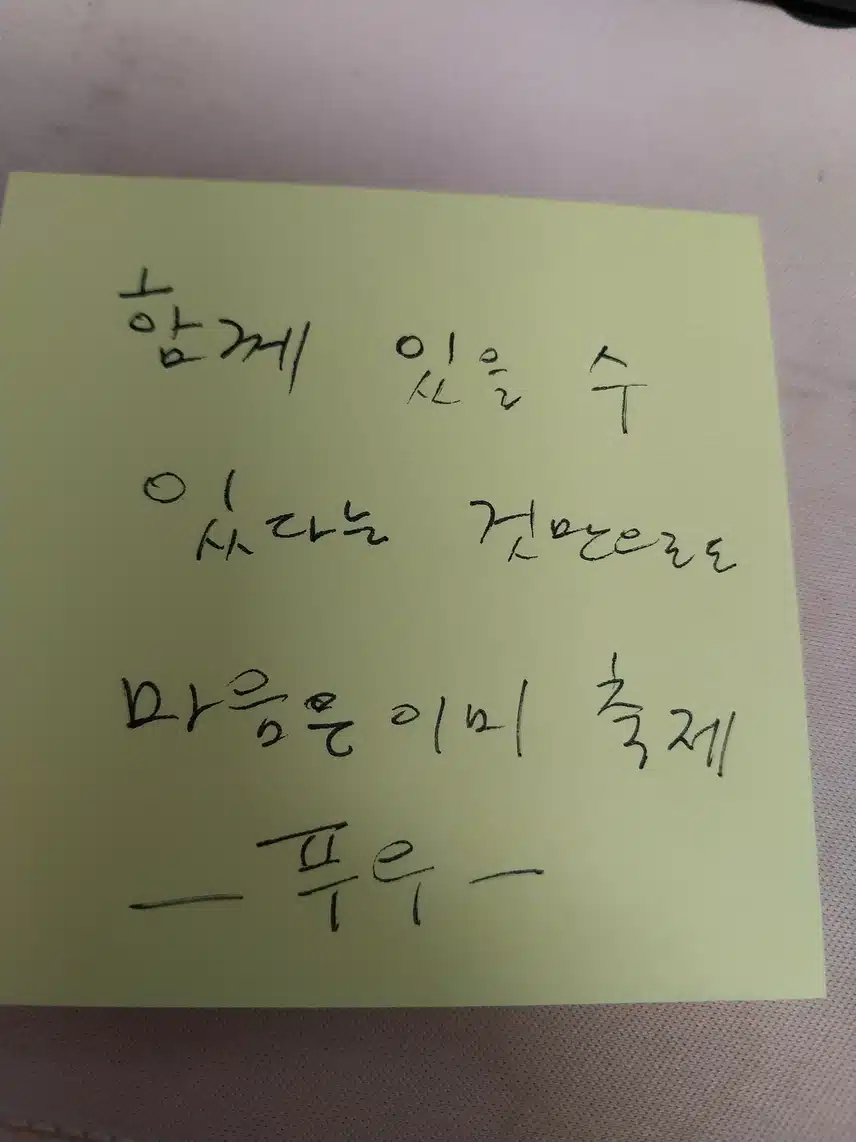 함께 있을 수
있다는 것만으로도
마음은 이미 축제
— 푸우 —